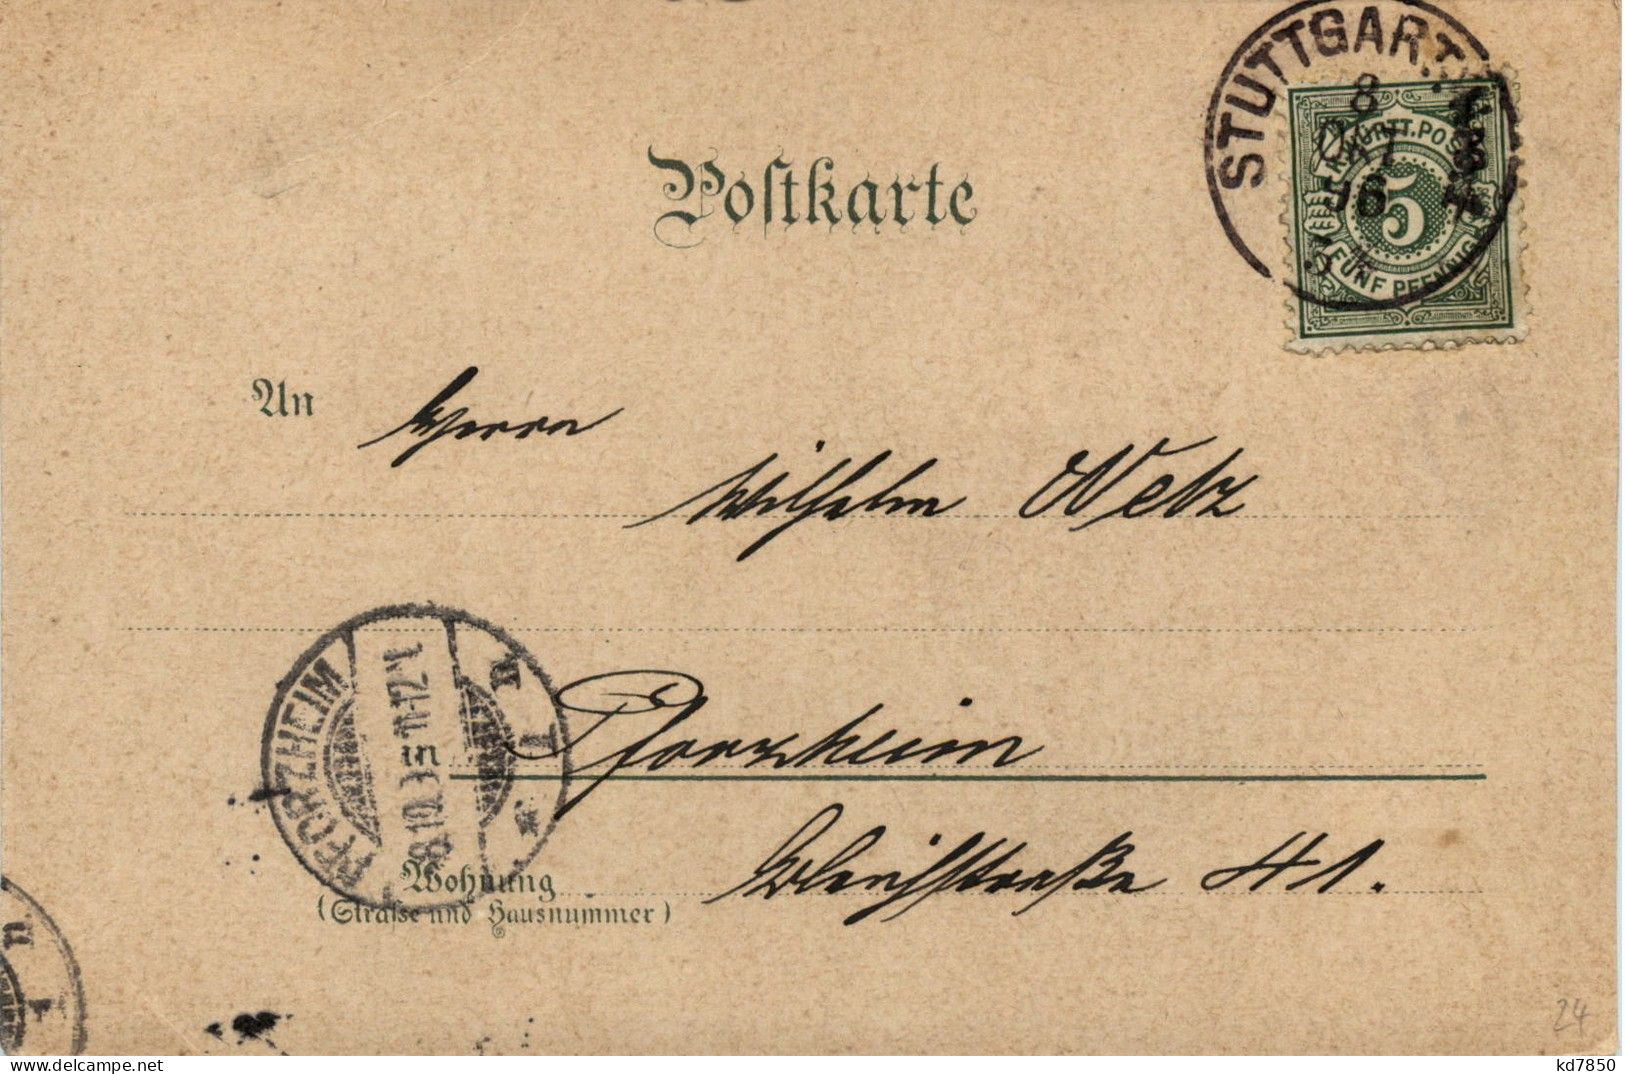 STUTTGART
8
OKT
96
K. WÜRTT. POST
5
FÜNF PFENNIG
Postkarte
An Herrn
Wilhelm Metz
in Pforzheim
PFORZHEIM
8.10. 11-12
Wohnung Bleichstraße 41.
(Straße und Hausnummer)
24
kd7850